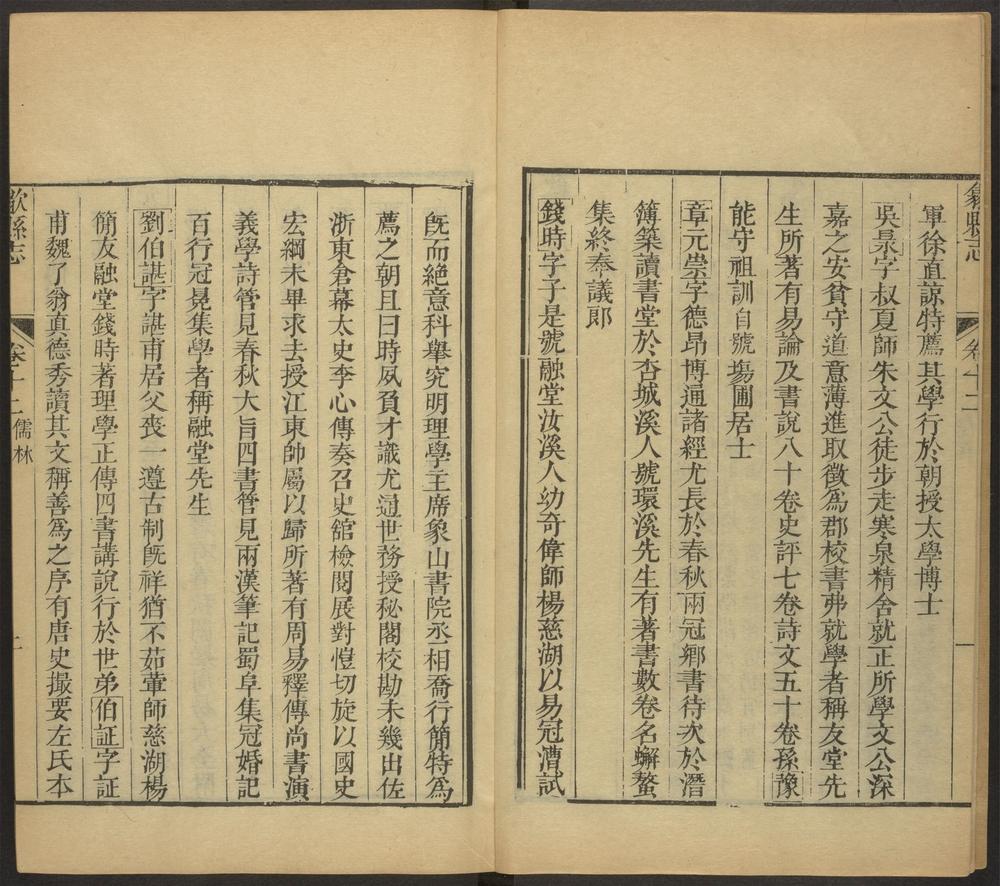 歙縣志
卷十二
一
軍徐直諒特薦其學行於朝授太學博士
吳昶字叔夏師朱文公徒步走寒泉精舍就正所學文公深
嘉之安貧守道意薄進取徵為郡校書弗就學者稱友堂先
生所著有易論及書說八十卷史評七卷詩文五十卷孫豫
能守祖訓自號塲圃居士
章元崇字德昂博通諸經尤長於春秋兩冠鄉書待次於潛
簿築讀書堂於杏城溪人號環溪先生有著書數卷名蠏螯
集終奉議郎
錢時字子是號融堂汝溪人幼奇偉師楊慈湖以易冠漕試
既而絕意科舉究明理學主席象山書院丞相喬行簡特為
薦之朝且曰時夙負才識尤通世務授秘閣校勘未幾出佐
浙東倉幕太史李心傳奏召史舘檢閱展對愷切旋以國史
宏綱未畢求去授江東帥屬以歸所著有周易釋傳尚書演
義學詩管見春秋大旨四書管見兩漢筆記蜀阜集冠婚記
百行冠冕集學者稱融堂先生
劉伯諶字諶甫居父喪一遵古制既祥猶不茹葷師慈湖楊
簡友融堂錢時著理學正傳四書講說行於世弟伯証字証
甫魏了翁真德秀讀其文稱善為之序有唐史撮要左氏本
歙縣志
卷十二
儒林